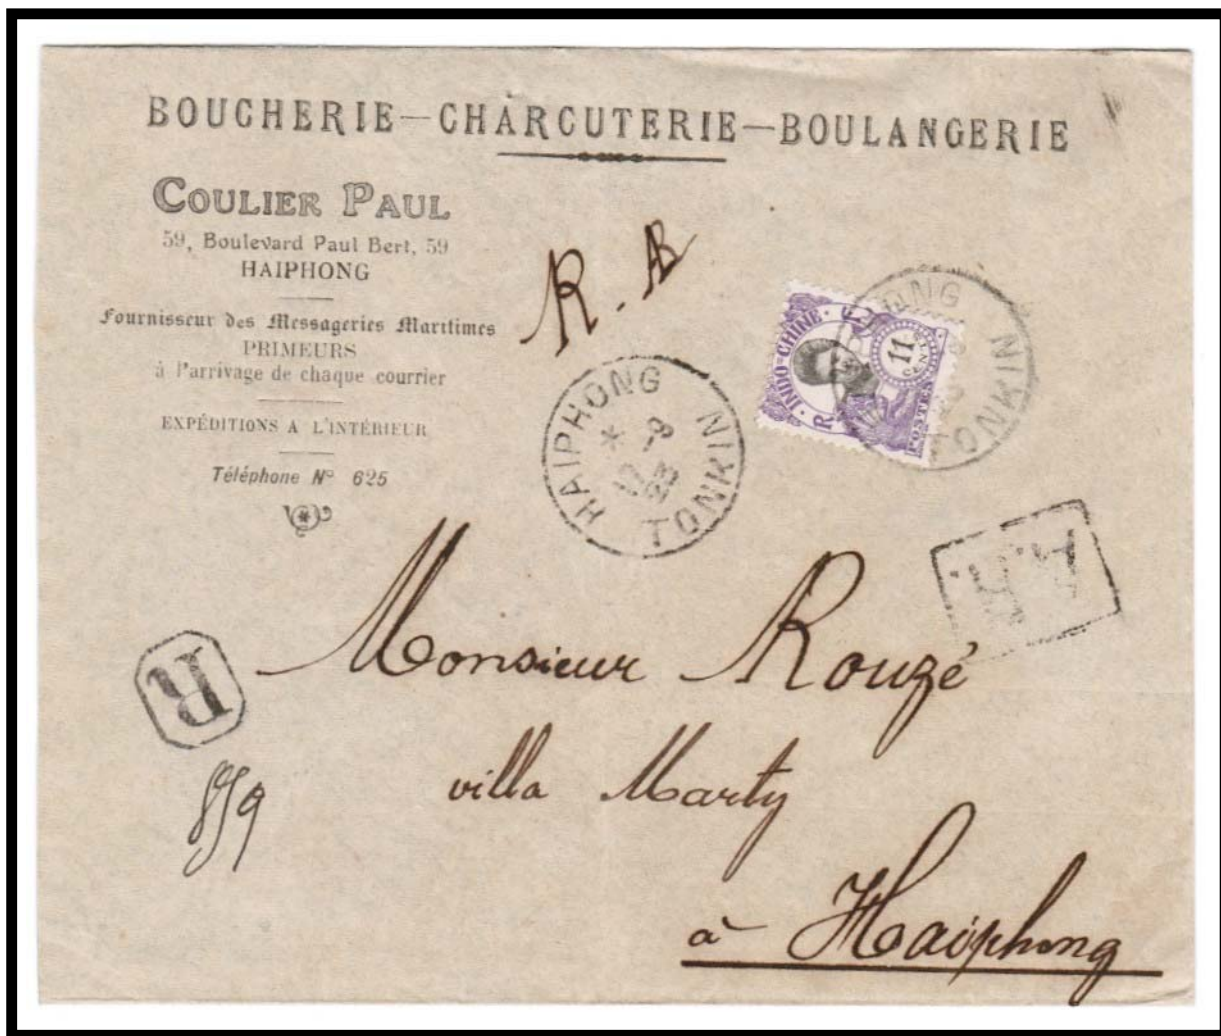 BOUCHERIE—CHARCUTERIE—BOULANGERIE
COULIER PAUL
59, Boulevard Paul Bert, 59
HAIPHONG
Fournisseur des Messageries Maritimes
PRIMEURS
à l'arrivage de chaque courrier
EXPÉDITIONS A L'INTÉRIEUR
Téléphone Nº 625
R. AR
INDO-CHINE
R F
11
CENTS
POSTES
HAIPHONG
TONKIN
HAIPHONG
*
TONKIN
A.R.
R
Monsieur Rouzé
villa Marty
à Haiphong